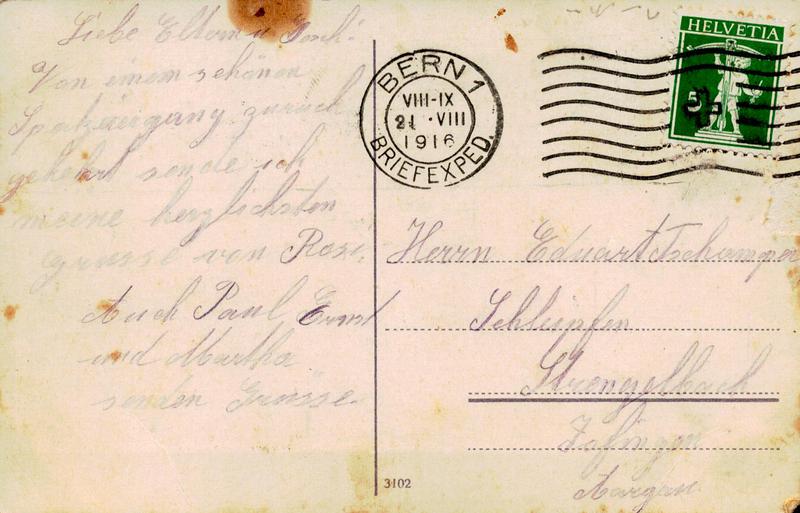 Liebe Eltern u Geschl.
Von einem schönen
Spaziergang zurück
gekehrt sende ich
meine herzlichsten
Grüsse von Rosi.
Auch Paul Ernst
und Martha
senden Grüsse.
3102
BERN 1
VIII-IX
21 · VIII
1916
BRIEFEXPED.
HELVETIA
5
Herrn Eduart Tschamper
Schleipfen
Strengelbach
Zofingen
Aargau